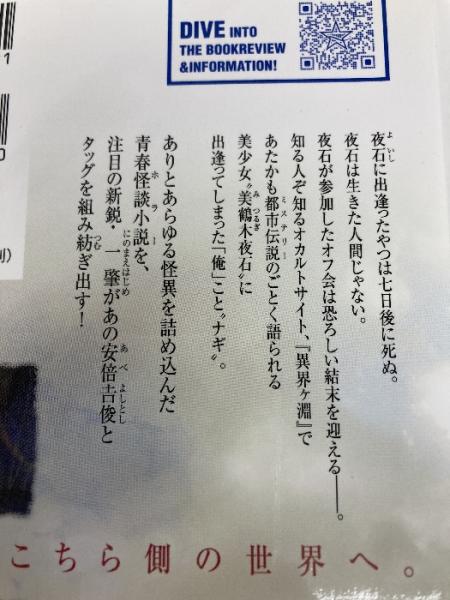 DIVE INTO
THE BOOKREVIEW
&INFORMATION!
夜石に出逢ったやつは七日後に死ぬ。
夜石は生きた人間じゃない。
夜石が参加したオフ会は恐ろしい結末を迎える――。
知る人ぞ知るオカルトサイト、『異界ヶ淵』で
あたかも都市伝説のごとく語られる
美少女〝美鶴木夜石〟に
出逢ってしまった「俺」こと〝ナギ〟。
ありとあらゆる怪異を詰め込んだ
青春怪談小説を、
注目の新鋭・一肇があの安倍吉俊と
タッグを組み紡ぎ出す！
こちら側の世界へ。